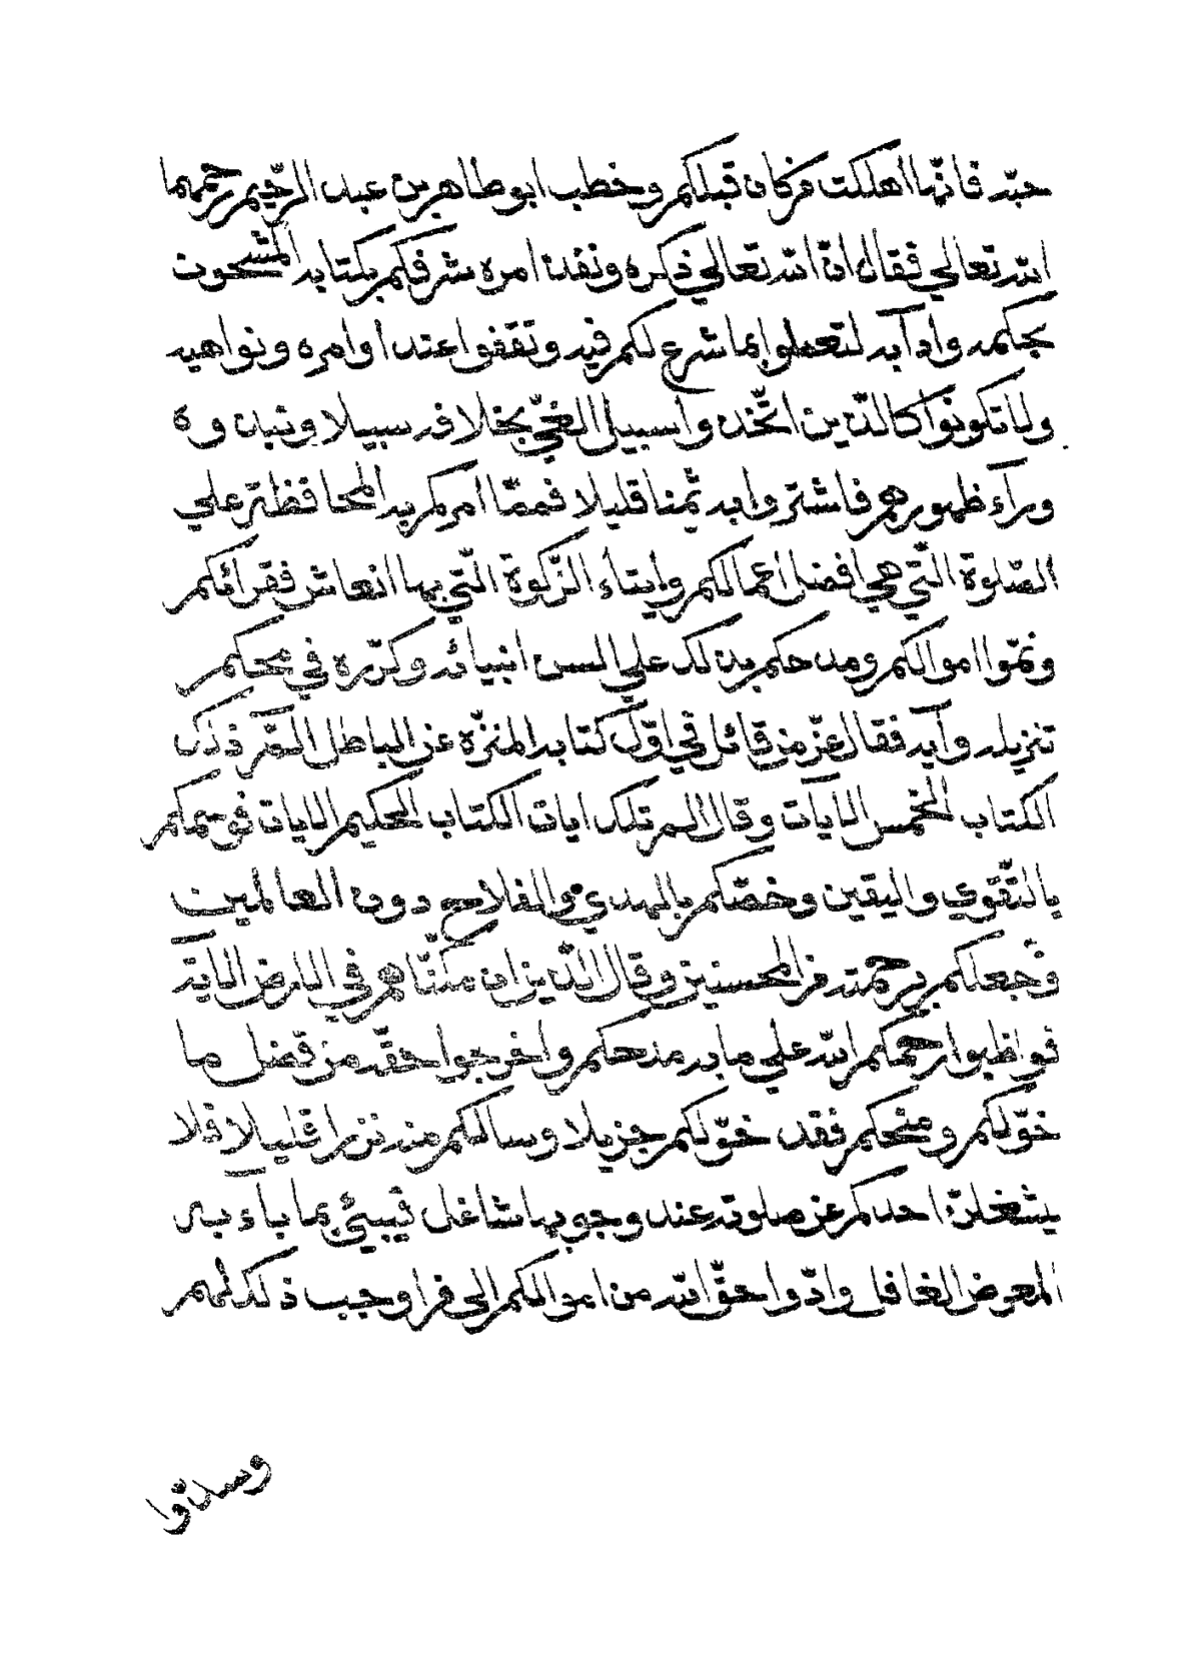 حبّه فانّها اهلكت من كان قبلكم وخطب ابو طاهر بن عبد الرّحيم رحمهما
الله تعالي فقال انّ الله تعالي ذكره ونفذ امره شرفكم بكتابه المشحون
بحكمه وادآبه لتعملوا بما شرع لكم فيه وتقفوا عند اوامره ونواهيه
ولا تكونوا كالذّين اتّخذوا سبيل الغيّ بخلافه سبيلا ونبذوه
ورآء ظهورهم فاشتروا به ثمنا قليلا فممّا امركم به المحافظة علي
الصّلوة الّتي هي افضل اعمالكم وايتاء الزّكوة الّتي بها انعاش فقرائكم
ونموّا اموالكم ومدحكم بذلك علي السن انبيائه وكرّره في محكم
تنزيله وآيه فقال عزّ من قائل في اوّل كتابه المنزّه عن الباطل الٓمّ ذلك
الكتاب الخمس الآيات وقال الم تلك ايات الكتاب الحكيم الايات فوسمكم
بالتّقوي واليقين وخصّكم بالهدي والفلاح دون العالمين
وجعلكم برحمته من المحسنين وقال الّذين ان مكنّاهم في الارض الاية
فواظبوا رحمكم الله علي ما به مدحكم واخرجوا حقّه من فضل ما
خوّلكم ومنحكم فقد خوّلكم جزيلا وسالكم منه نزرا قليلا فلا
يشغلنّ احدكم عن صلوته عند وجوبها شاغل فيبئ بما بآء به
المعرض الغافل وادّوا حقّ الله من اموالكم الي من اوجب ذلك لهم